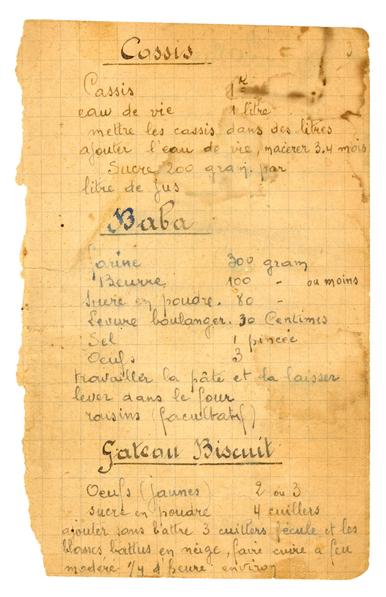 Cassis
3
Cassis 1k
eau de vie 1 litre
mettre les cassis dans des litres
ajouter l'eau de vie, macérer 3.4 mois
Sucre 200 gram. par
litre de jus
Baba
farine 300 gram
Beurre 100 - ou moins
sucre en poudre. 80 -
Levure boulanger. 30 Centimes
Sel 1 pincée
Oeufs 3
travailler la pâte et la laisser
lever dans le four
raisins (facultatif)
Gateau Biscuit
Oeufs (jaunes) 2 ou 3
sucre en poudre 4 cuillers
ajouter sans battre 3 cuillers fécule et les
blancs battus en neige, faire cuire à feu
modéré 1/4 d'heure environ